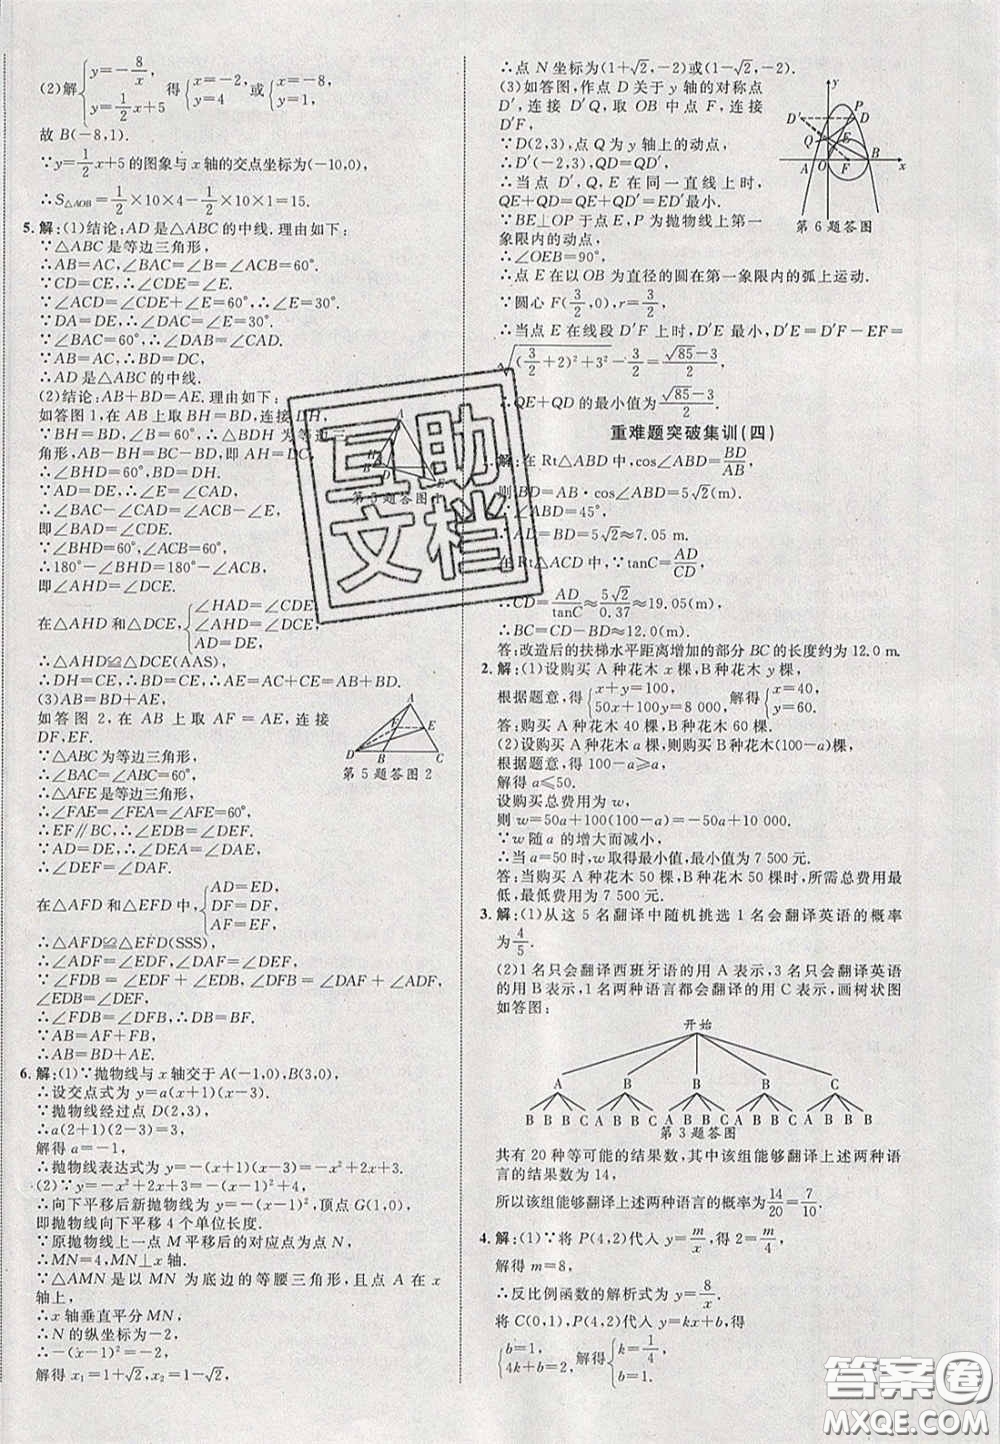 (2)解{y=-8/x, y=1/2x+5 得{x=-2, y=4 或{x=-8, y=1.
故 B(-8,1).
∵y=1/2x+5的图象与x轴的交点坐标为(-10,0),
∴S△AOB=1/2×10×4-1/2×10×1=15.
5.解:(1)结论:AD是△ABC的中线.理由如下:
∵△ABC是等边三角形,
∴AB=AC,∠BAC=∠B=∠ACB=60°.
∵CD=CE,∴∠CDE=∠E.
∵∠ACD=∠CDE+∠E=60°,∴∠E=30°.
∵DA=DE,∴∠DAC=∠E=30°.
∵∠BAC=60°,∴∠DAB=∠CAD.
∵AB=AC,∴BD=DC,
∴AD是△ABC的中线.
(2)结论:AB+BD=AE.理由如下:
如答图1,在AB上取BH=BD,连接DH,
∵BH=BD,∠B=60°,∴△BDH为等边三
角形,AB-BH=BC-BD,
∴∠BHD=60°,BD=DH,AH=DC.
∵AD=DE,∴∠E=∠CAD,
∴∠BAC-∠CAD=∠ACB-∠E,
即∠BAD=∠CDE.
∵∠BHD=60°,∠ACB=60°,
∴180°-∠BHD=180°-∠ACB,
即∠AHD=∠DCE.
在△AHD和△DCE,{∠HAD=∠CDE, ∠AHD=∠DCE, AD=DE,
∴△AHD≌△DCE(AAS),
∴DH=CE,∴BD=CE,∴AE=AB+BD.
(3)AB=BD+AE.
如答图2,在AB上取AF=AE,连接
DF,EF.
∵△ABC为等边三角形,
∴∠BAC=∠ABC=60°,
∴△AFE是等边三角形,
∴∠FAE=∠FEA=∠AFE=60°,
∴EF∥BC,∴∠EDB=∠DEF.
∵AD=DE,∴∠DEA=∠DAE,
∴∠DEF=∠DAF.
在△AFD和△EFD中,{AD=ED, DF=DF, AF=EF,
∴△AFD≌△EFD(SSS),
∴∠ADF=∠EDF,∠DAF=∠DEF,
∵∠FDB=∠EDF+∠EDB,∠DFB=∠DAF+∠ADF,
∠EDB=∠DEF,
∴∠FDB=∠DFB,∴DB=BF.
∵AB=AF+FB,
∴AB=BD+AE.
6.解:(1)∵抛物线与x轴交于A(-1,0),B(3,0),
∴设交点式为y=a(x+1)(x-3).
∵抛物线经过点D(2,3),
∴a(2+1)(2-3)=3,
解得a=-1,
∴抛物线表达式为y=-(x+1)(x-3)=-x²+2x+3.
(2)∵y=-(x+1)(x-3)=-(x-1)²+4,
∴向下平移后新抛物线为y=-(x-1)²,顶点G(1,0),
即抛物线向下平移4个单位长度.
∵原抛物线上一点M平移后的对应点为点N,
∴MN=4,MN⊥x轴.
∵△AMN是以MN为底边的等腰三角形,且点A在x
轴上,
∴x轴垂直平分MN,
∴N的纵坐标为-2,
∴-(x-1)²=-2,
解得x₁=1+√2,x₂=1-√2,
第5题答图1
第5题答图2
∴点N坐标为(1+√2,-2)或(1-√2,-2).
(3)如答图,作点D关于y轴的对称点
D′,连接D′Q,取OB中点F,连接
D′F.
∵D(2,3),Q为y轴上的动点,
∴D′(-2,3),QD=QD′,
∴当点D′,Q,E在同一直线上时,
QE+QD=QE+QD′=D′E最小.
∵BE⊥OP于点E,P为抛物线上第一
象限内的动点,
∴∠OEB=90°,
∴点E在以OB为直径的圆在第一象限内的弧上运动.
∵圆心F(3/2,0),r=3/2,
∴当点E在线段D′F上时,D′E最小,D′E=D′F-EF=
√((3/2+2)²+3²)-3/2=(√85-3)/2,
∴QE+QD的最小值为(√85-3)/2.
第6题答图
重难题突破集训(四)
1.解:在Rt△ABD中,cos∠ABD=BD/AB,
则BD=AB·cos∠ABD=5√2(m).
∵∠ABD=45°,
∴AD=BD=5√2≈7.05 m.
在Rt△ACD中,∵tanC=AD/CD,
∴CD=AD/tanC≈5√2/0.37≈19.05(m),
∴BC=CD-BD≈12.0(m).
答:改造后的扶梯水平距离增加的部分BC的长度约为12.0 m.
2.解:(1)设购买A种花木x棵,B种花木y棵,
根据题意,得{x+y=100, 50x+100y=8 000, 解得{x=40, y=60.
答:购买A种花木40棵,B种花木60棵.
(2)设购买A种花木a棵,则购买B种花木(100-a)棵,
根据题意,得100-a≥a,
解得a≤50.
设购买总费用为w,
则w=50a+100(100-a)=-50a+10000.
∵w随a的增大而减小,
∴当a=50时,w取得最小值,最小值为7 500元.
答:当购买A种花木50棵、B种花木50棵时,所需总费用最
低,最低费用为7 500元.
3.解:(1)从这5名翻译中随机挑选1名会翻译英语的概率
为4/5.
(2)1名只会翻译西班牙语的用A表示,3名只会翻译英语
的用B表示,1名两种语言都会翻译的用C表示,画树状图
如答图:
开始
A B B B C
B B B C A B B C A B B C A B B C A B B B
第3题答图
共有20种等可能的结果数,其中该组能够翻译上述两种语
言的结果数为14,
所以该组能够翻译上述两种语言的概率为14/20=7/10.
4.解:(1)∵将P(4,2)代入y=m/x,得2=m/4,
解得m=8,
∴反比例函数的解析式为y=8/x.
将C(0,1),P(4,2)代入y=kx+b,得
{b=1, 4k+b=2, 解得{k=1/4, b=1.
互助文档
答案圈
MXQE.COM